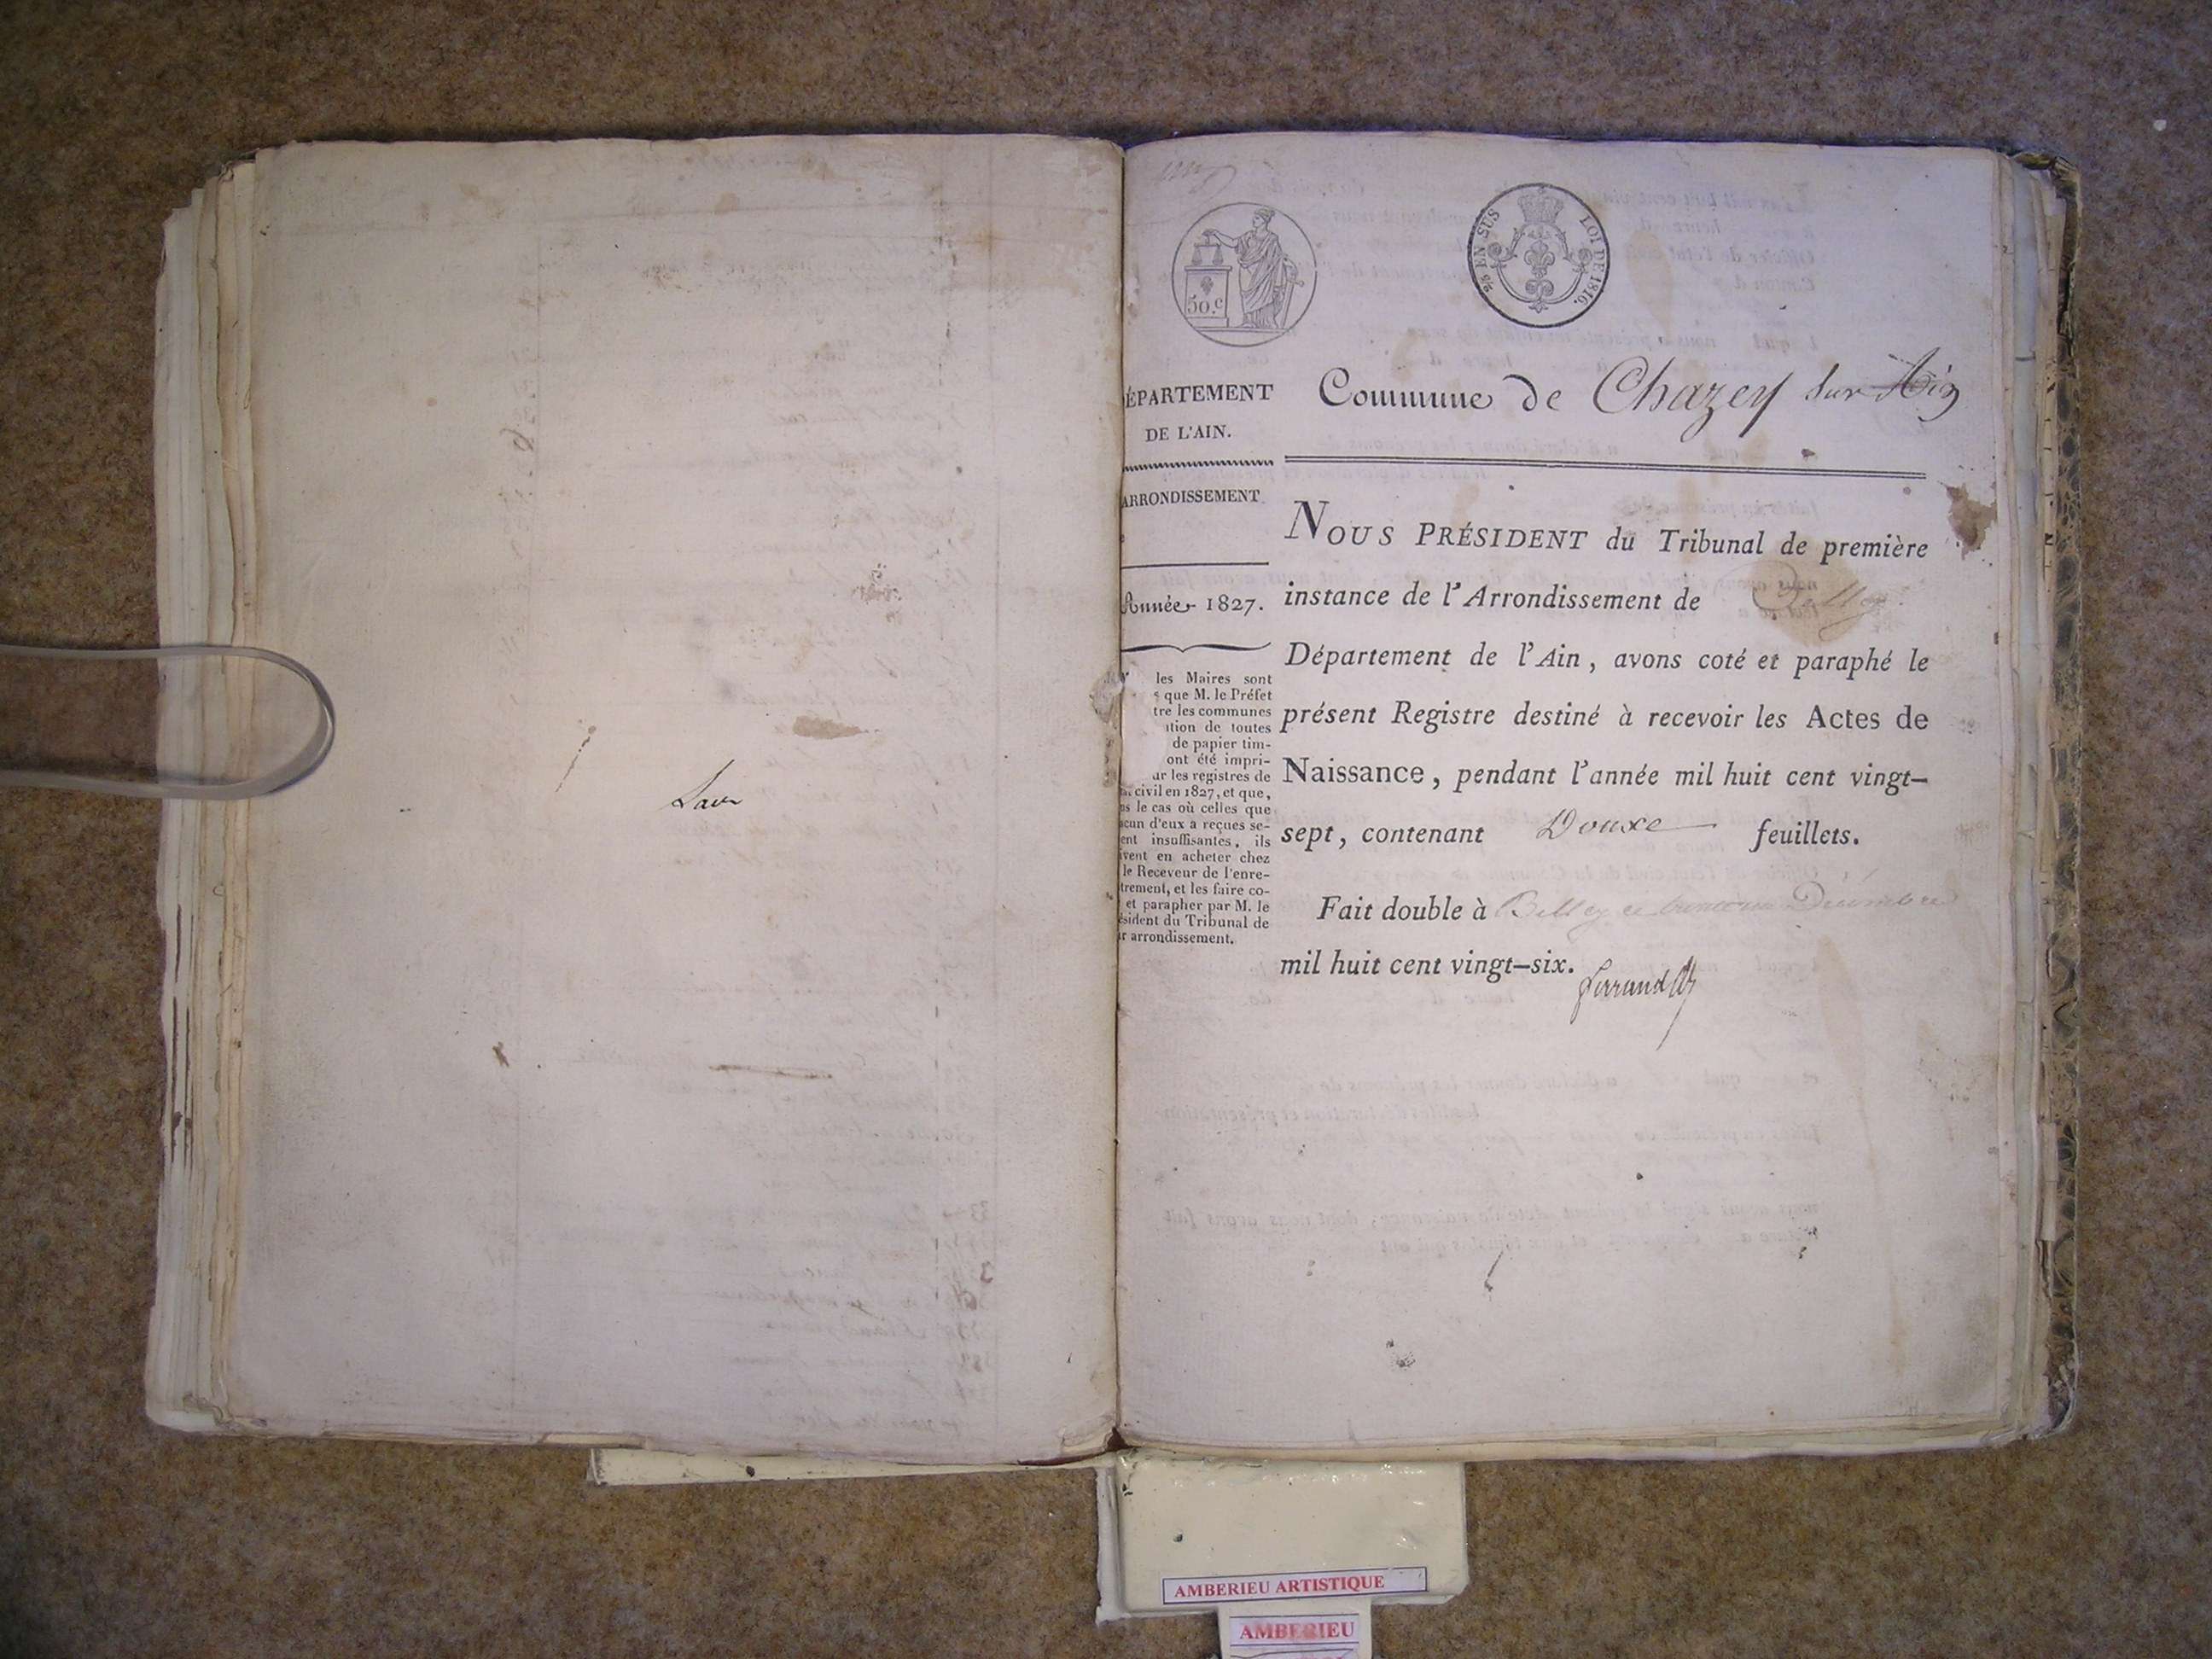 Lavr
50.c
2/5 EN SUS LOI DE 1816.
ÉPARTEMENT
DE L'AIN.
ARRONDISSEMENT
Année 1827.
les Maires sont
que M. le Préfet
tre les communes
ition de toutes
de papier tim-
ont été impri-
ur les registres de
civil en 1827, et que,
ns le cas où celles que
acun d'eux a reçues se-
ent insuffisantes, ils
ivent en acheter chez
le Receveur de l'enre-
trement, et les faire co-
et parapher par M. le
ésident du Tribunal de
ur arrondissement.
Commune de Chazey sur Ain
NOUS PRÉSIDENT du Tribunal de première
instance de l'Arrondissement de Belley
Département de l'Ain, avons coté et paraphé le
présent Registre destiné à recevoir les Actes de
Naissance, pendant l'année mil huit cent vingt-
sept, contenant Douze feuillets.
Fait double à Belley ce Décembre
mil huit cent vingt-six.
AMBERIEU ARTISTIQUE
AMBERIEU